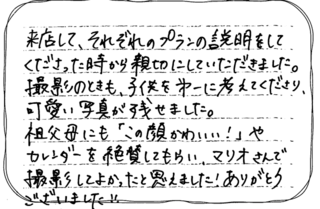 来店して、それぞれのプランの説明をして
くださった時から親切にしていただきました。
撮影のときも、子供を第一に考えてくださり、
可愛い写真が残せました。
祖父母にも「この顔かわいい!」や
カレンダーを絶賛してもらい、マリオさんで
撮影してよかったと思えました!ありがとう
ございました!!